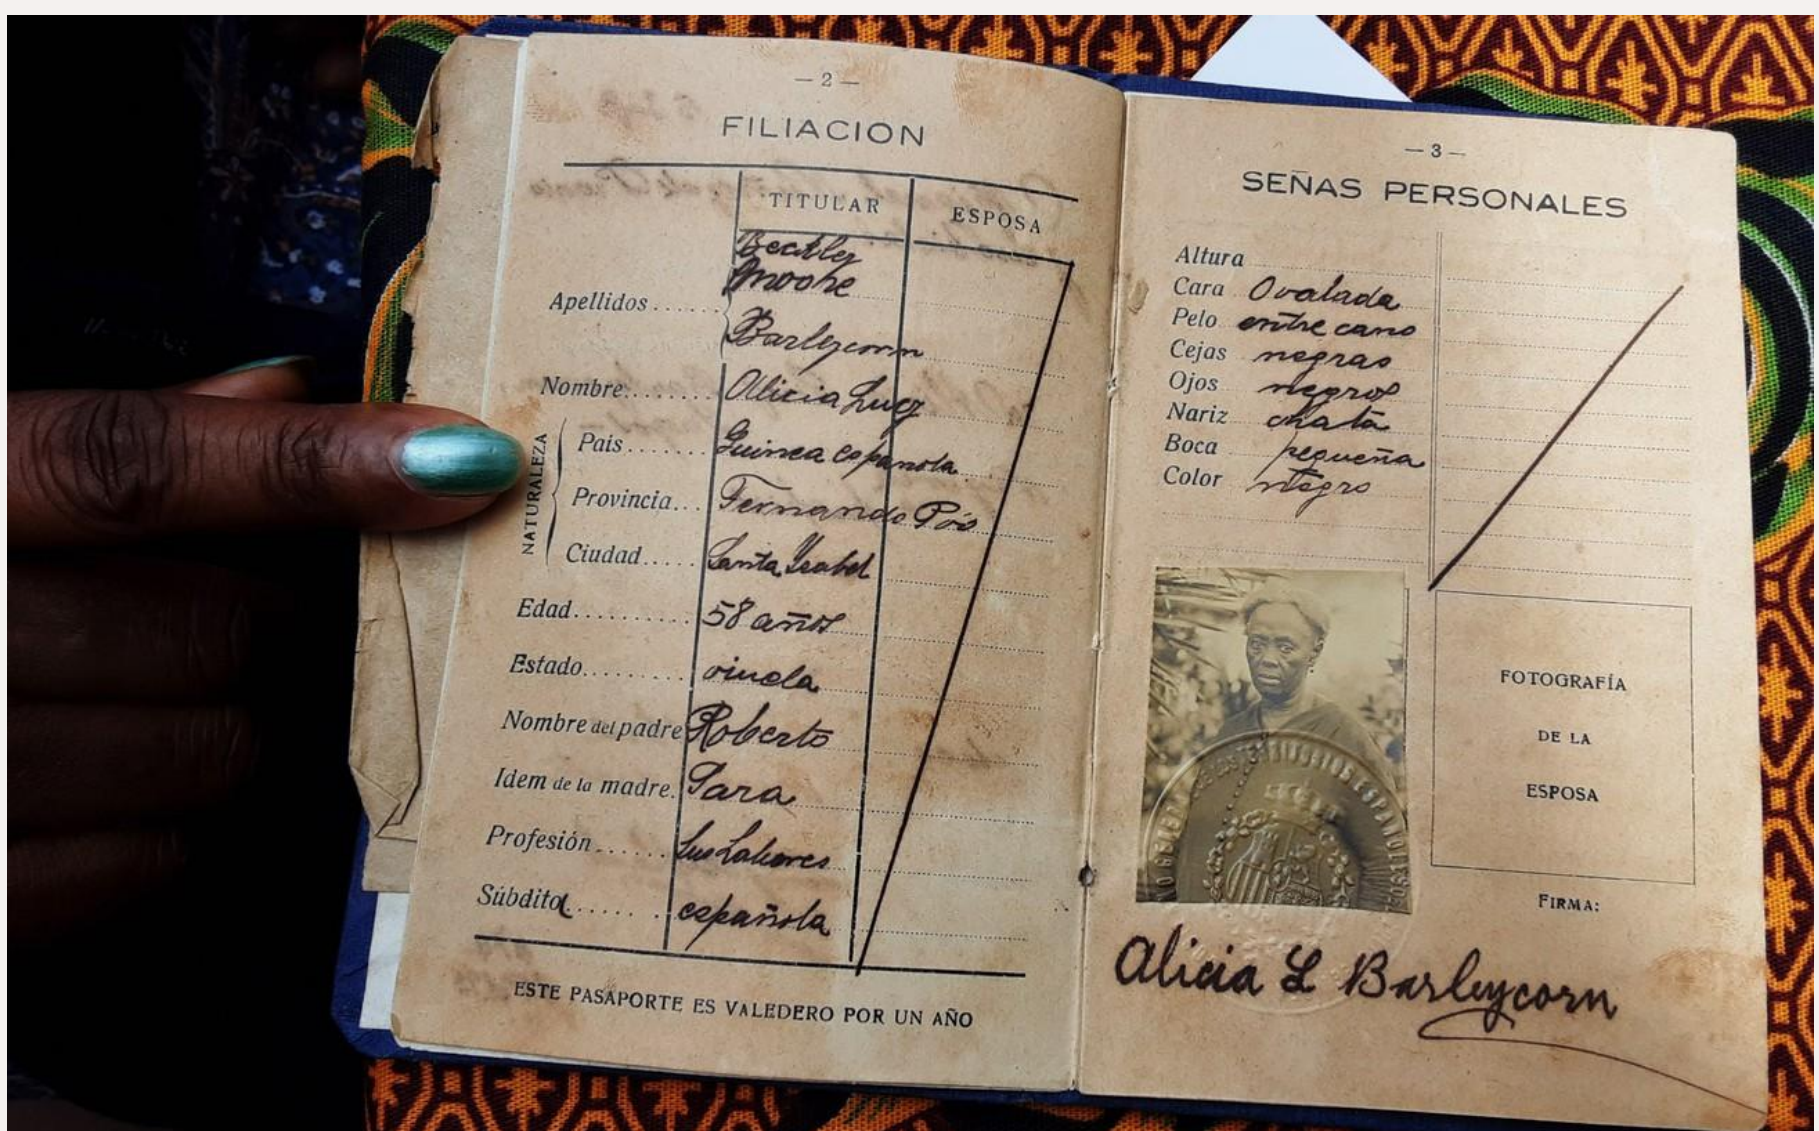 — 2 —
FILIACION
TITULAR
ESPOSA
Moore
Apellidos
Barleycorn
Nombre Alicia
NATURALEZA
País Guinea española
Provincia Fernando Póo
Ciudad Santa Ysabel
Edad 58 años
Estado viuda
Nombre del padre Roberto
Idem de la madre. Sara
Profesión Sus Labores
Súbdita española
ESTE PASAPORTE ES VALEDERO POR UN AÑO
— 3 —
SEÑAS PERSONALES
Altura
Cara Ovalada
Pelo entre cano
Cejas negras
Ojos negros
Nariz chata
Boca pequeña
Color negro
FOTOGRAFÍA
DE LA
ESPOSA
FIRMA:
Alicia L Barleycorn